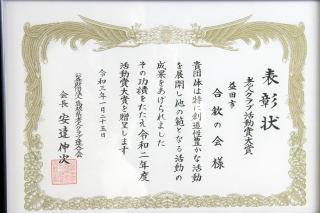 表彰状
老人クラブ活動賞大賞
益田市
合歓の会 様
貴団体は特に創造性豊かな活動
を展開し他の範となる活動の
成果をあげられました
その功績をたたえ令和二年度
活動賞大賞を贈呈します
令和三年一月二十五日
会長 安達伸次